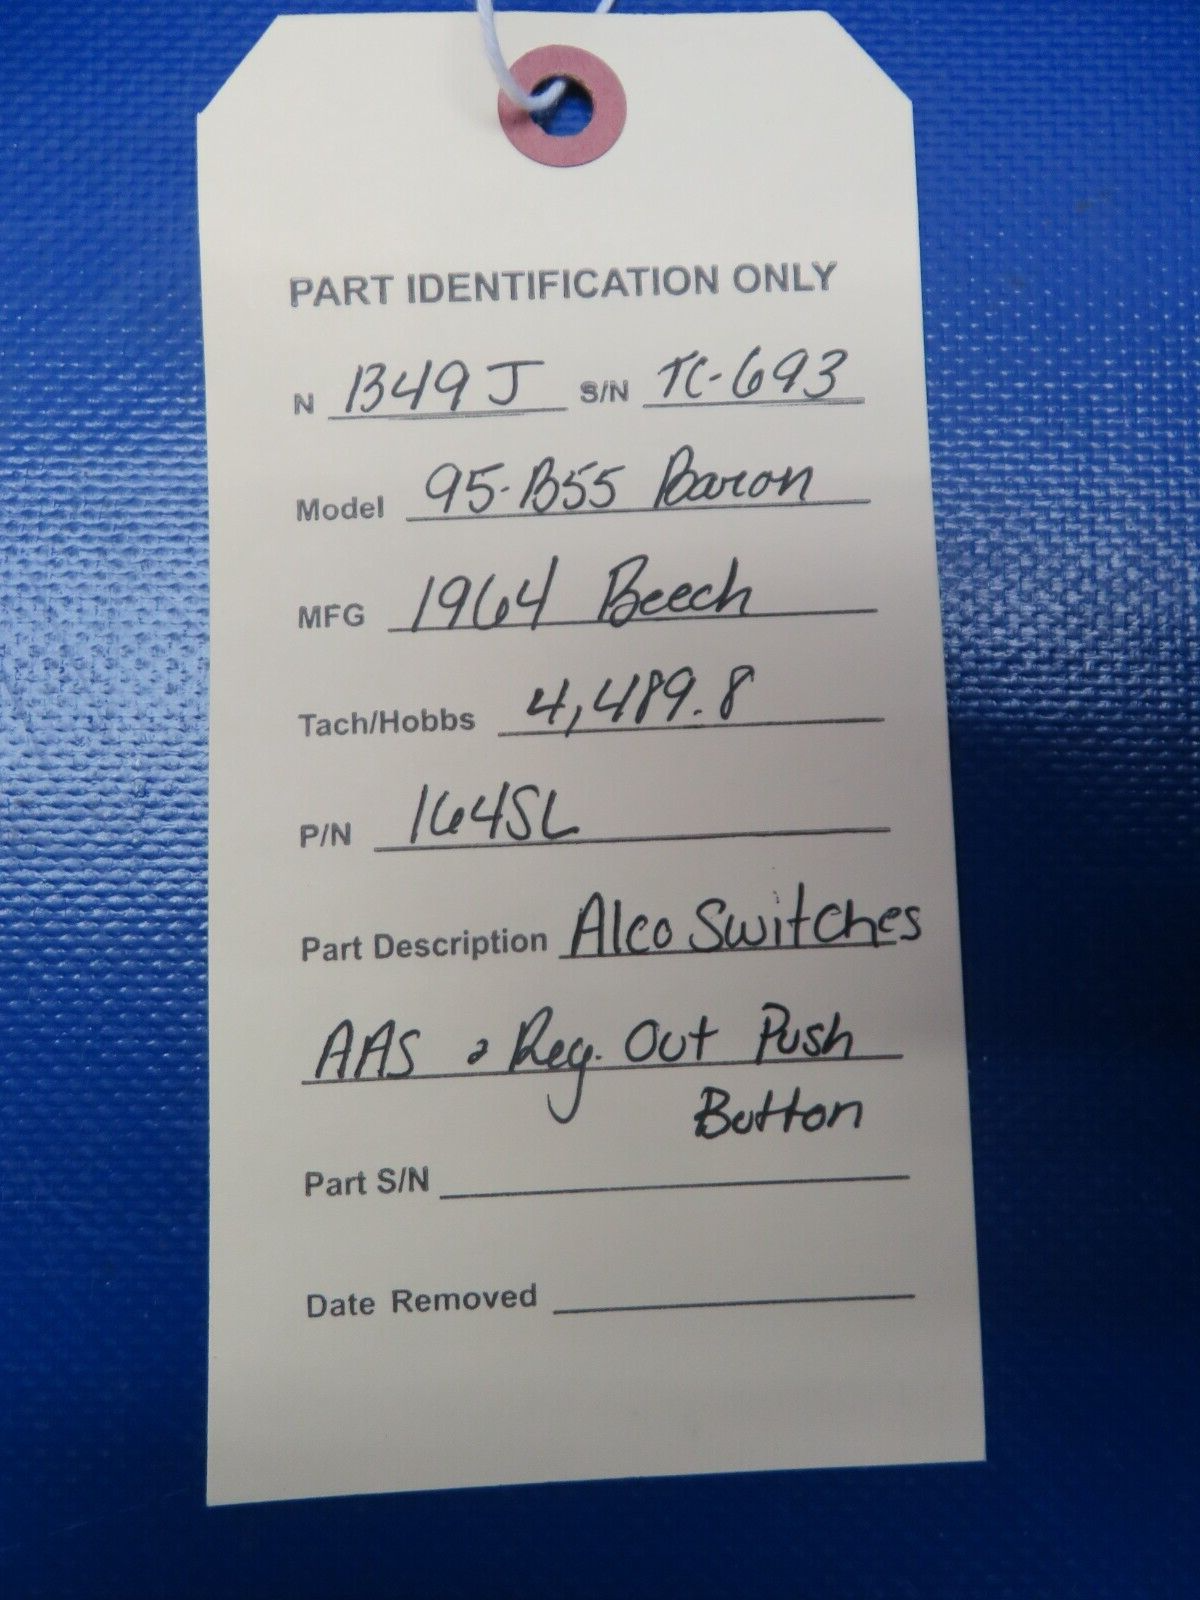 PART IDENTIFICATION ONLY
N 1349J S/N TC-693
Model 95-B55 Baron
MFG 1964 Beech
Tach/Hobbs 4,489.8
P/N 164SL
Part Description Alco Switches
AAS & Reg. Out Push
Button
Part S/N
Date Removed